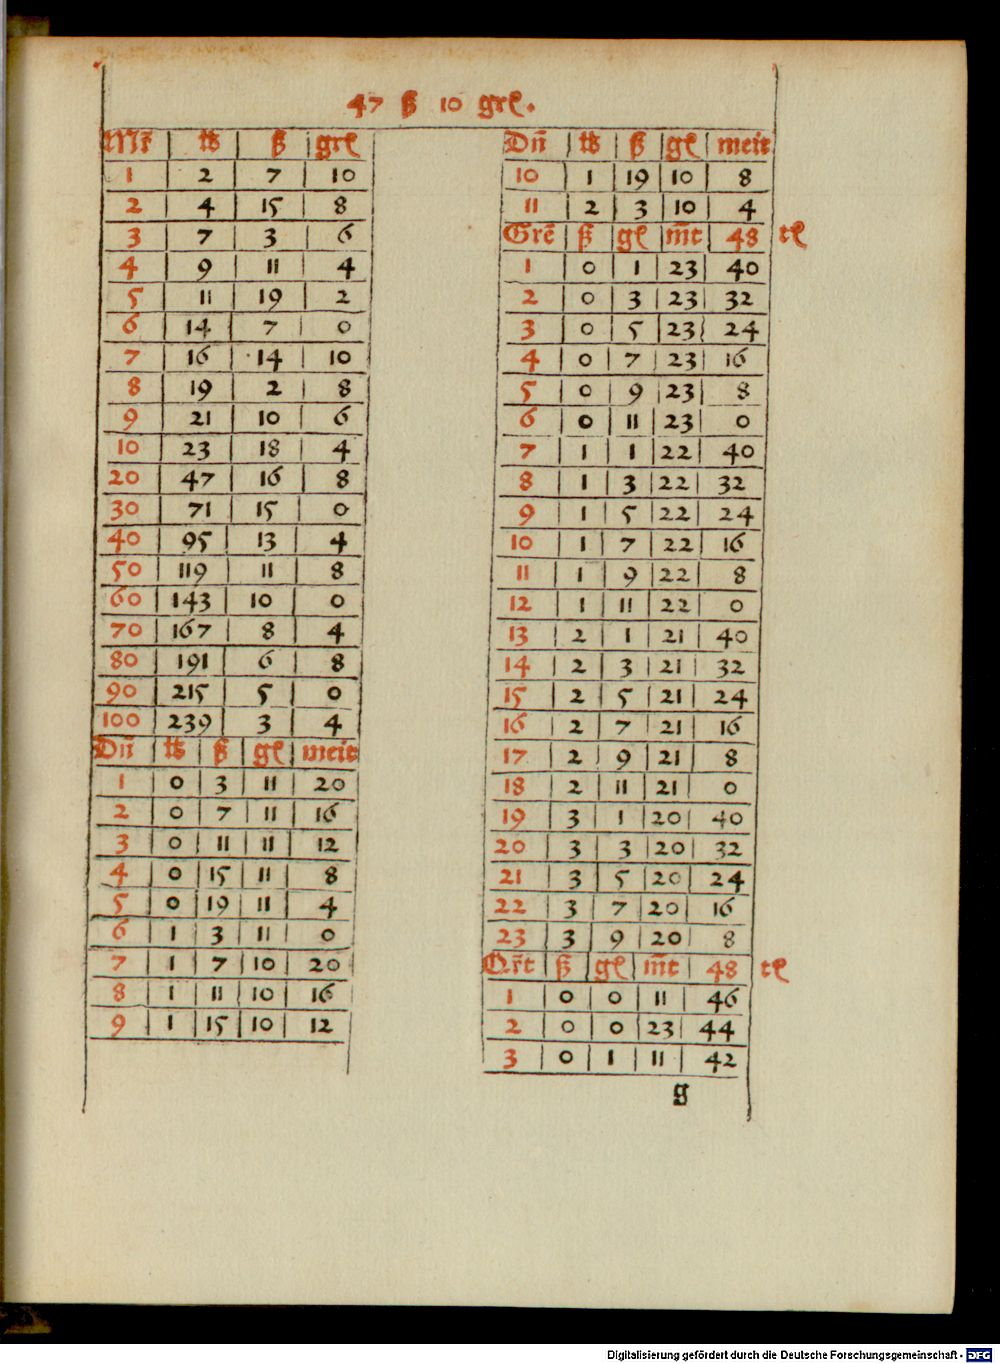 47 ẞ 10 grꝭ.
Mr̃ | ℔ | ẞ | grꝭ
1 | 2 | 7 | 10
2 | 4 | 15 | 8
3 | 7 | 3 | 6
4 | 9 | 11 | 4
5 | 11 | 19 | 2
6 | 14 | 7 | 0
7 | 16 | 14 | 10
8 | 19 | 2 | 8
9 | 21 | 10 | 6
10 | 23 | 18 | 4
20 | 47 | 16 | 8
30 | 71 | 15 | 0
40 | 95 | 13 | 4
50 | 119 | 11 | 8
60 | 143 | 10 | 0
70 | 167 | 8 | 4
80 | 191 | 6 | 8
90 | 215 | 5 | 0
100 | 239 | 3 | 4
Dn̄ | ℔ | ẞ | gꝭ | meit
1 | 0 | 3 | 11 | 20
2 | 0 | 7 | 11 | 16
3 | 0 | 11 | 11 | 12
4 | 0 | 15 | 11 | 8
5 | 0 | 19 | 11 | 4
6 | 1 | 3 | 11 | 0
7 | 1 | 7 | 10 | 20
8 | 1 | 11 | 10 | 16
9 | 1 | 15 | 10 | 12
Dn̄ | ℔ | ẞ | gꝭ | meit
10 | 1 | 19 | 10 | 8
11 | 2 | 3 | 10 | 4
Grē | ẞ | gꝭ | m̄t | 48 tꝭ
1 | 0 | 1 | 23 | 40
2 | 0 | 3 | 23 | 32
3 | 0 | 5 | 23 | 24
4 | 0 | 7 | 23 | 16
5 | 0 | 9 | 23 | 8
6 | 0 | 11 | 23 | 0
7 | 1 | 1 | 22 | 40
8 | 1 | 3 | 22 | 32
9 | 1 | 5 | 22 | 24
10 | 1 | 7 | 22 | 16
11 | 1 | 9 | 22 | 8
12 | 1 | 11 | 22 | 0
13 | 2 | 1 | 21 | 40
14 | 2 | 3 | 21 | 32
15 | 2 | 5 | 21 | 24
16 | 2 | 7 | 21 | 16
17 | 2 | 9 | 21 | 8
18 | 2 | 11 | 21 | 0
19 | 3 | 1 | 20 | 40
20 | 3 | 3 | 20 | 32
21 | 3 | 5 | 20 | 24
22 | 3 | 7 | 20 | 16
23 | 3 | 9 | 20 | 8
Qr̃t | ẞ | gꝭ | m̄t | 48 tꝭ
1 | 0 | 0 | 11 | 46
2 | 0 | 0 | 23 | 44
3 | 0 | 1 | 11 | 42
g
Digitalisierung gefördert durch die Deutsche Forschungsgemeinschaft - DFG